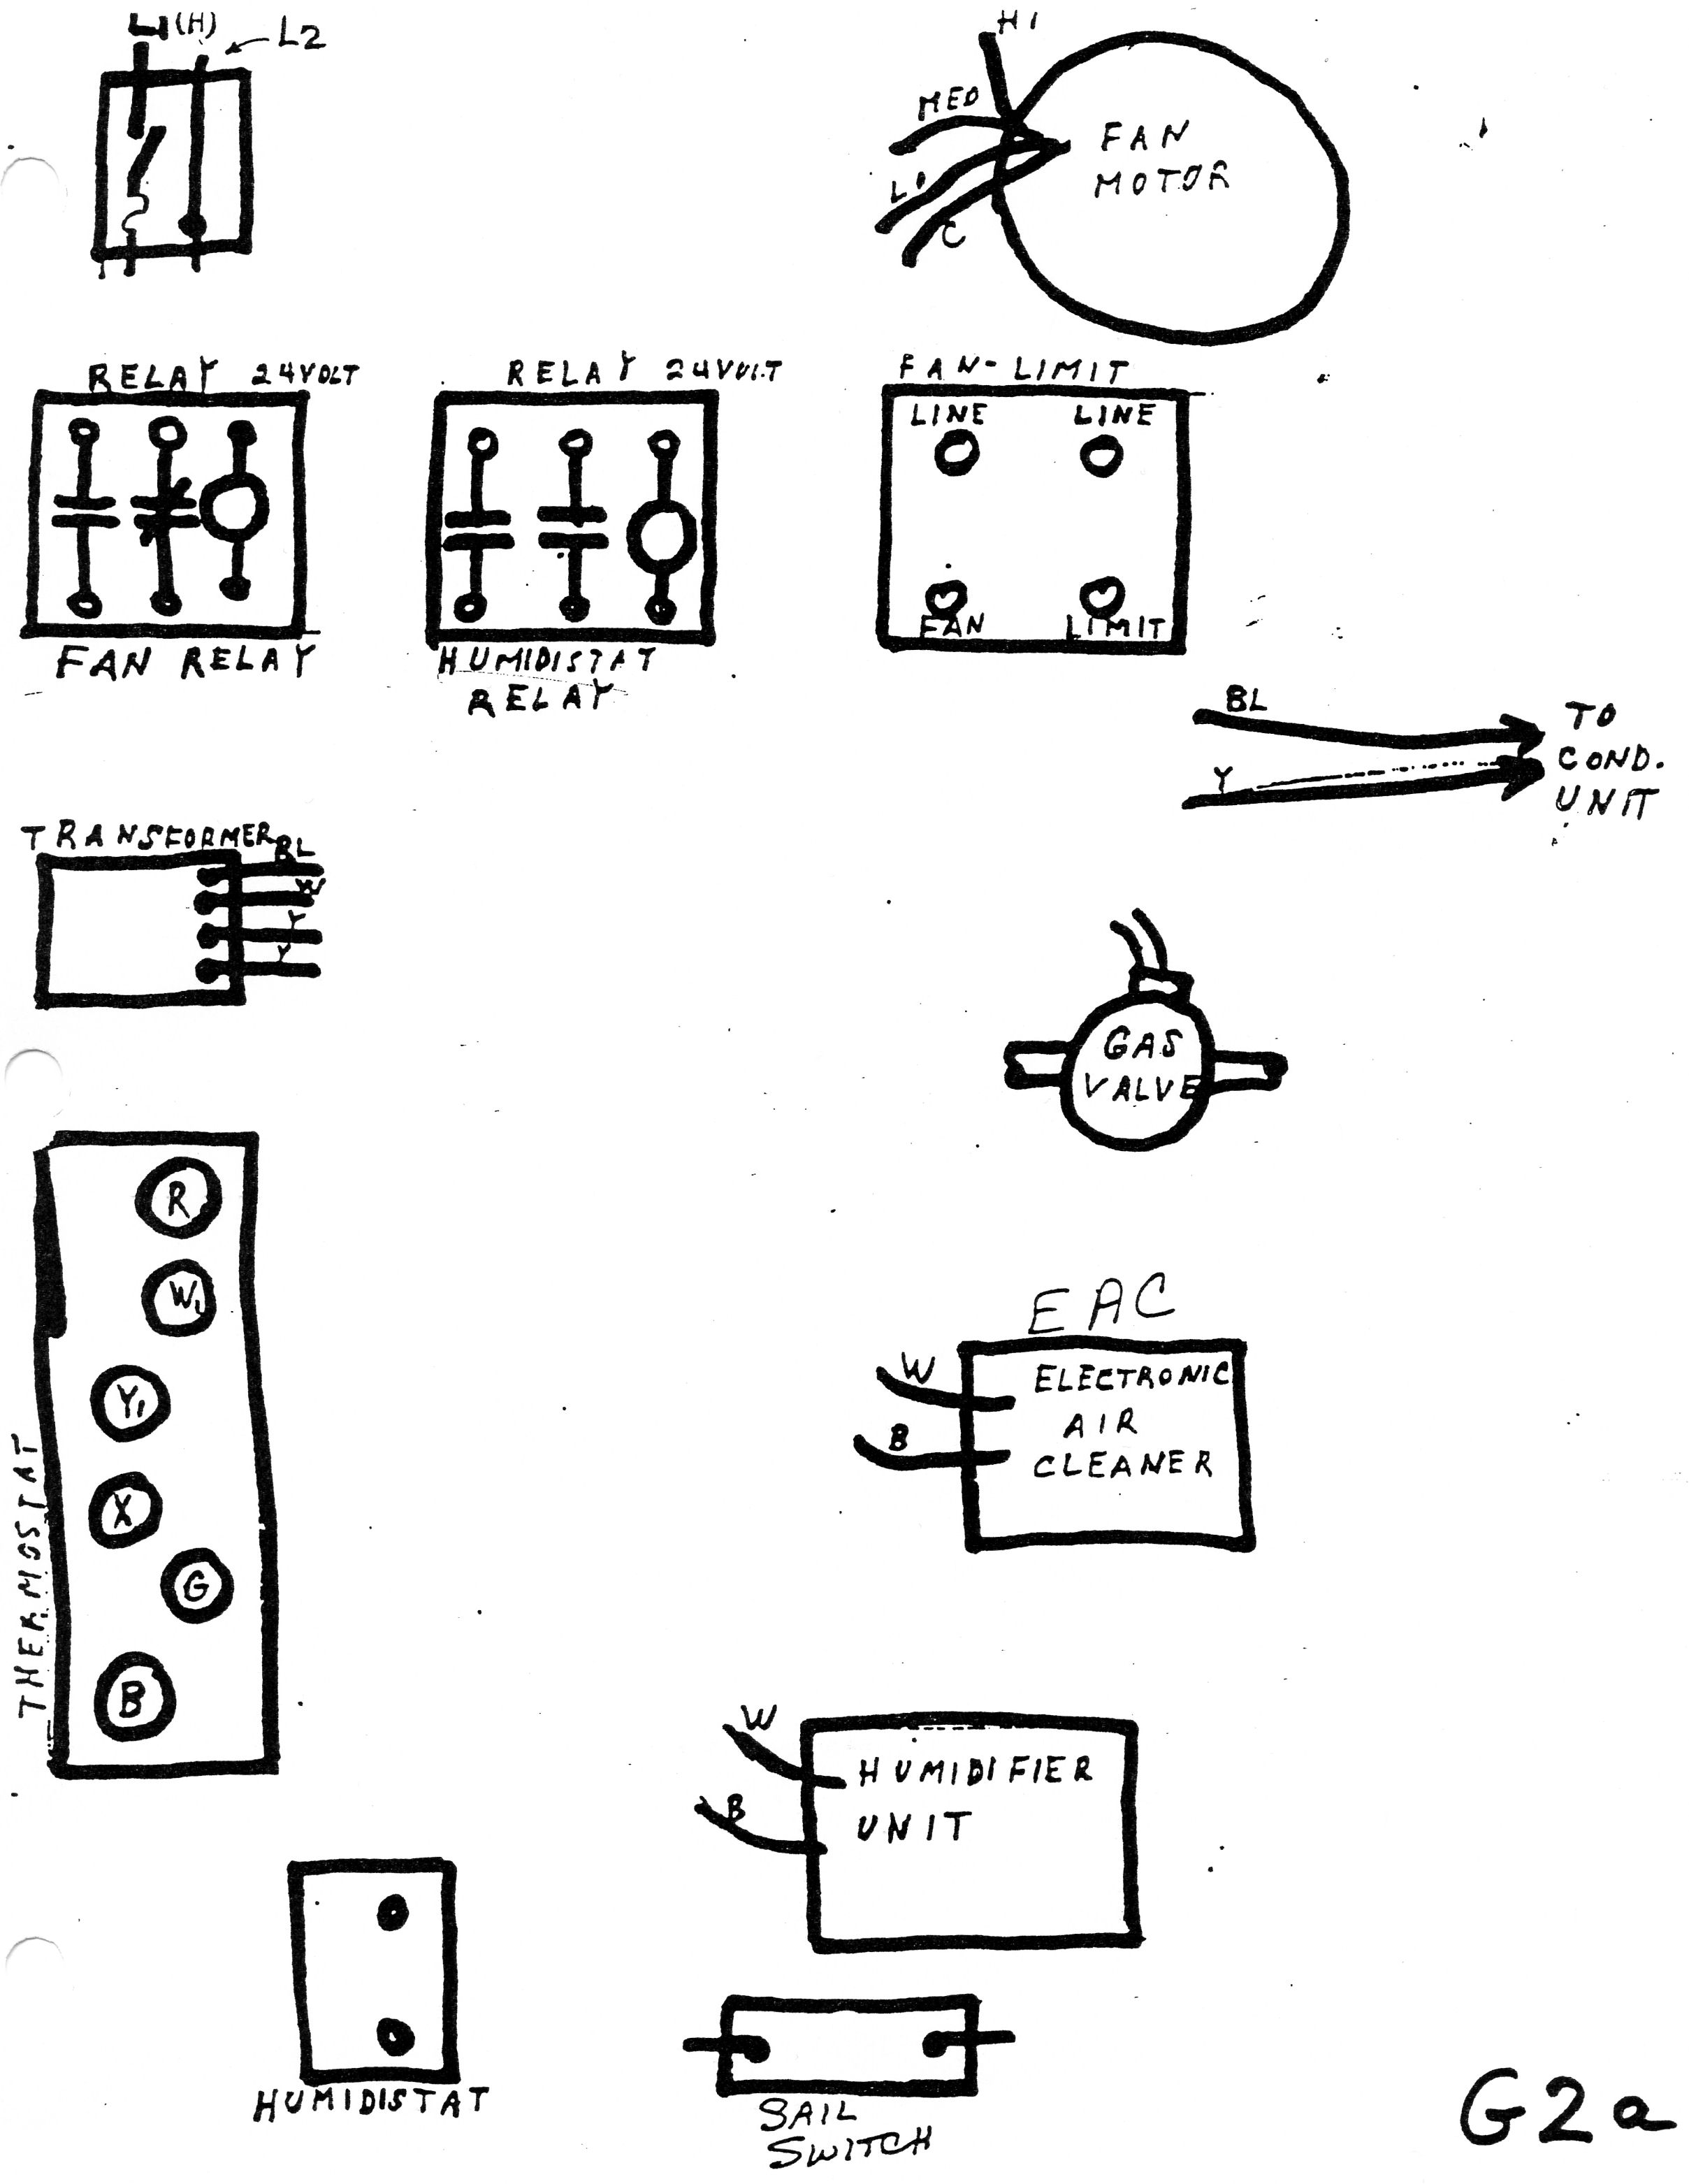 L1(H)
L2
HI
MED
LO
C
FAN
MOTOR
RELAY 24VOLT
FAN RELAY
RELAY 24VOLT
HUMIDISTAT
RELAY
FAN-LIMIT
LINE LINE
FAN LIMIT
BL
Y
TO
COND.
UNIT
TRANSFORMER
BL
W
Y
Y
GAS
VALVE
THERMOSTAT
R
W1
Y1
X
G
B
EAC
W
B
ELECTRONIC
AIR
CLEANER
W
B
HUMIDIFIER
UNIT
HUMIDISTAT
SAIL
SWITCH
G2a